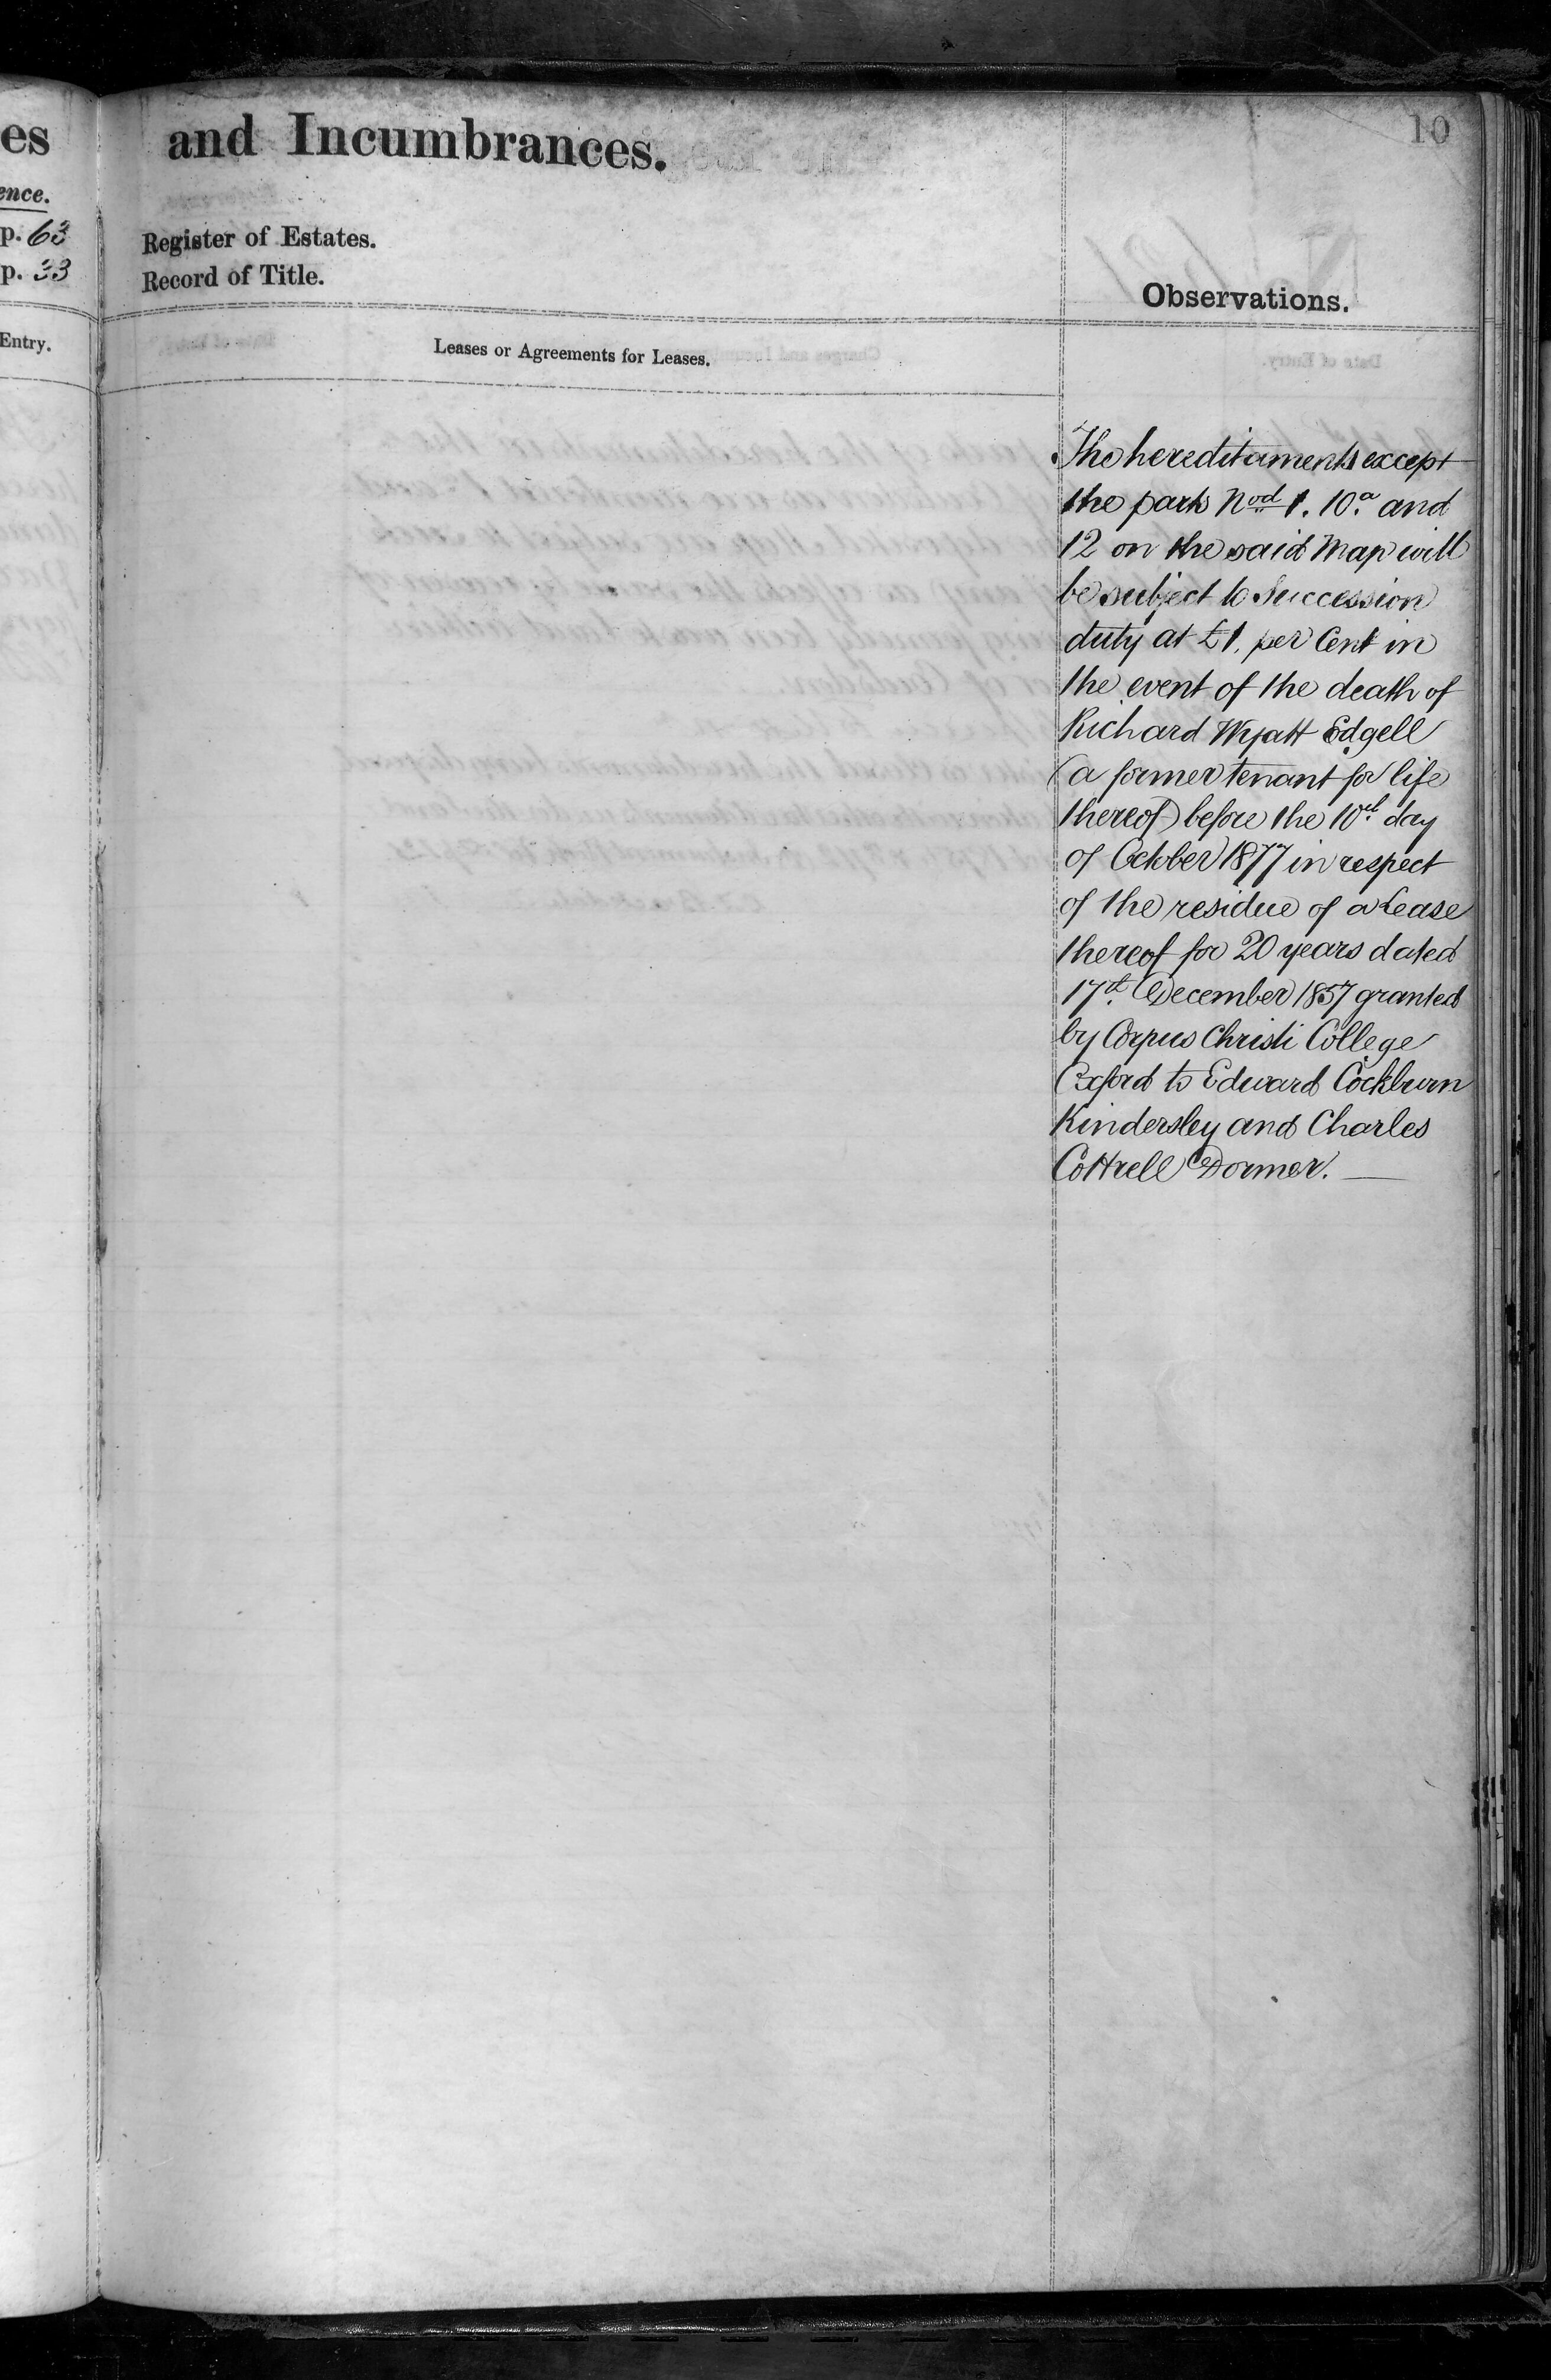 es
ence.
p. 63
p. 33
Entry.
and Incumbrances.
10
Register of Estates.
Record of Title.
Observations.
Leases or Agreements for Leases.
The hereditaments except
the parts Nod 1. 10a and
12 on the said Map will
be subject to Succession
duty at £1. per Cent in
the event of the death of
Richard Wyatt Edgell
(a former tenant for life
thereof) before the 10th day
of October 1877 in respect
of the residue of a Lease
thereof for 20 years dated
17th December 1857 granted
by Corpus Christi College
Oxford to Edward Cockburn
Kindersley and Charles
Cottrell Dormer.